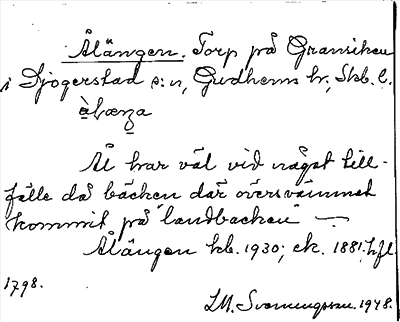 Ålängen. Torp på Gransiken
i Sjogerstad s:n, Gudhems hr, Skb. l.
àlæŋa
Ål har väl vid något till-
fälle då bäcken där översvämmat
kommit på landbacken —
Ålängen kb. 1930; ek. 1881; hfl
1798.
1948.